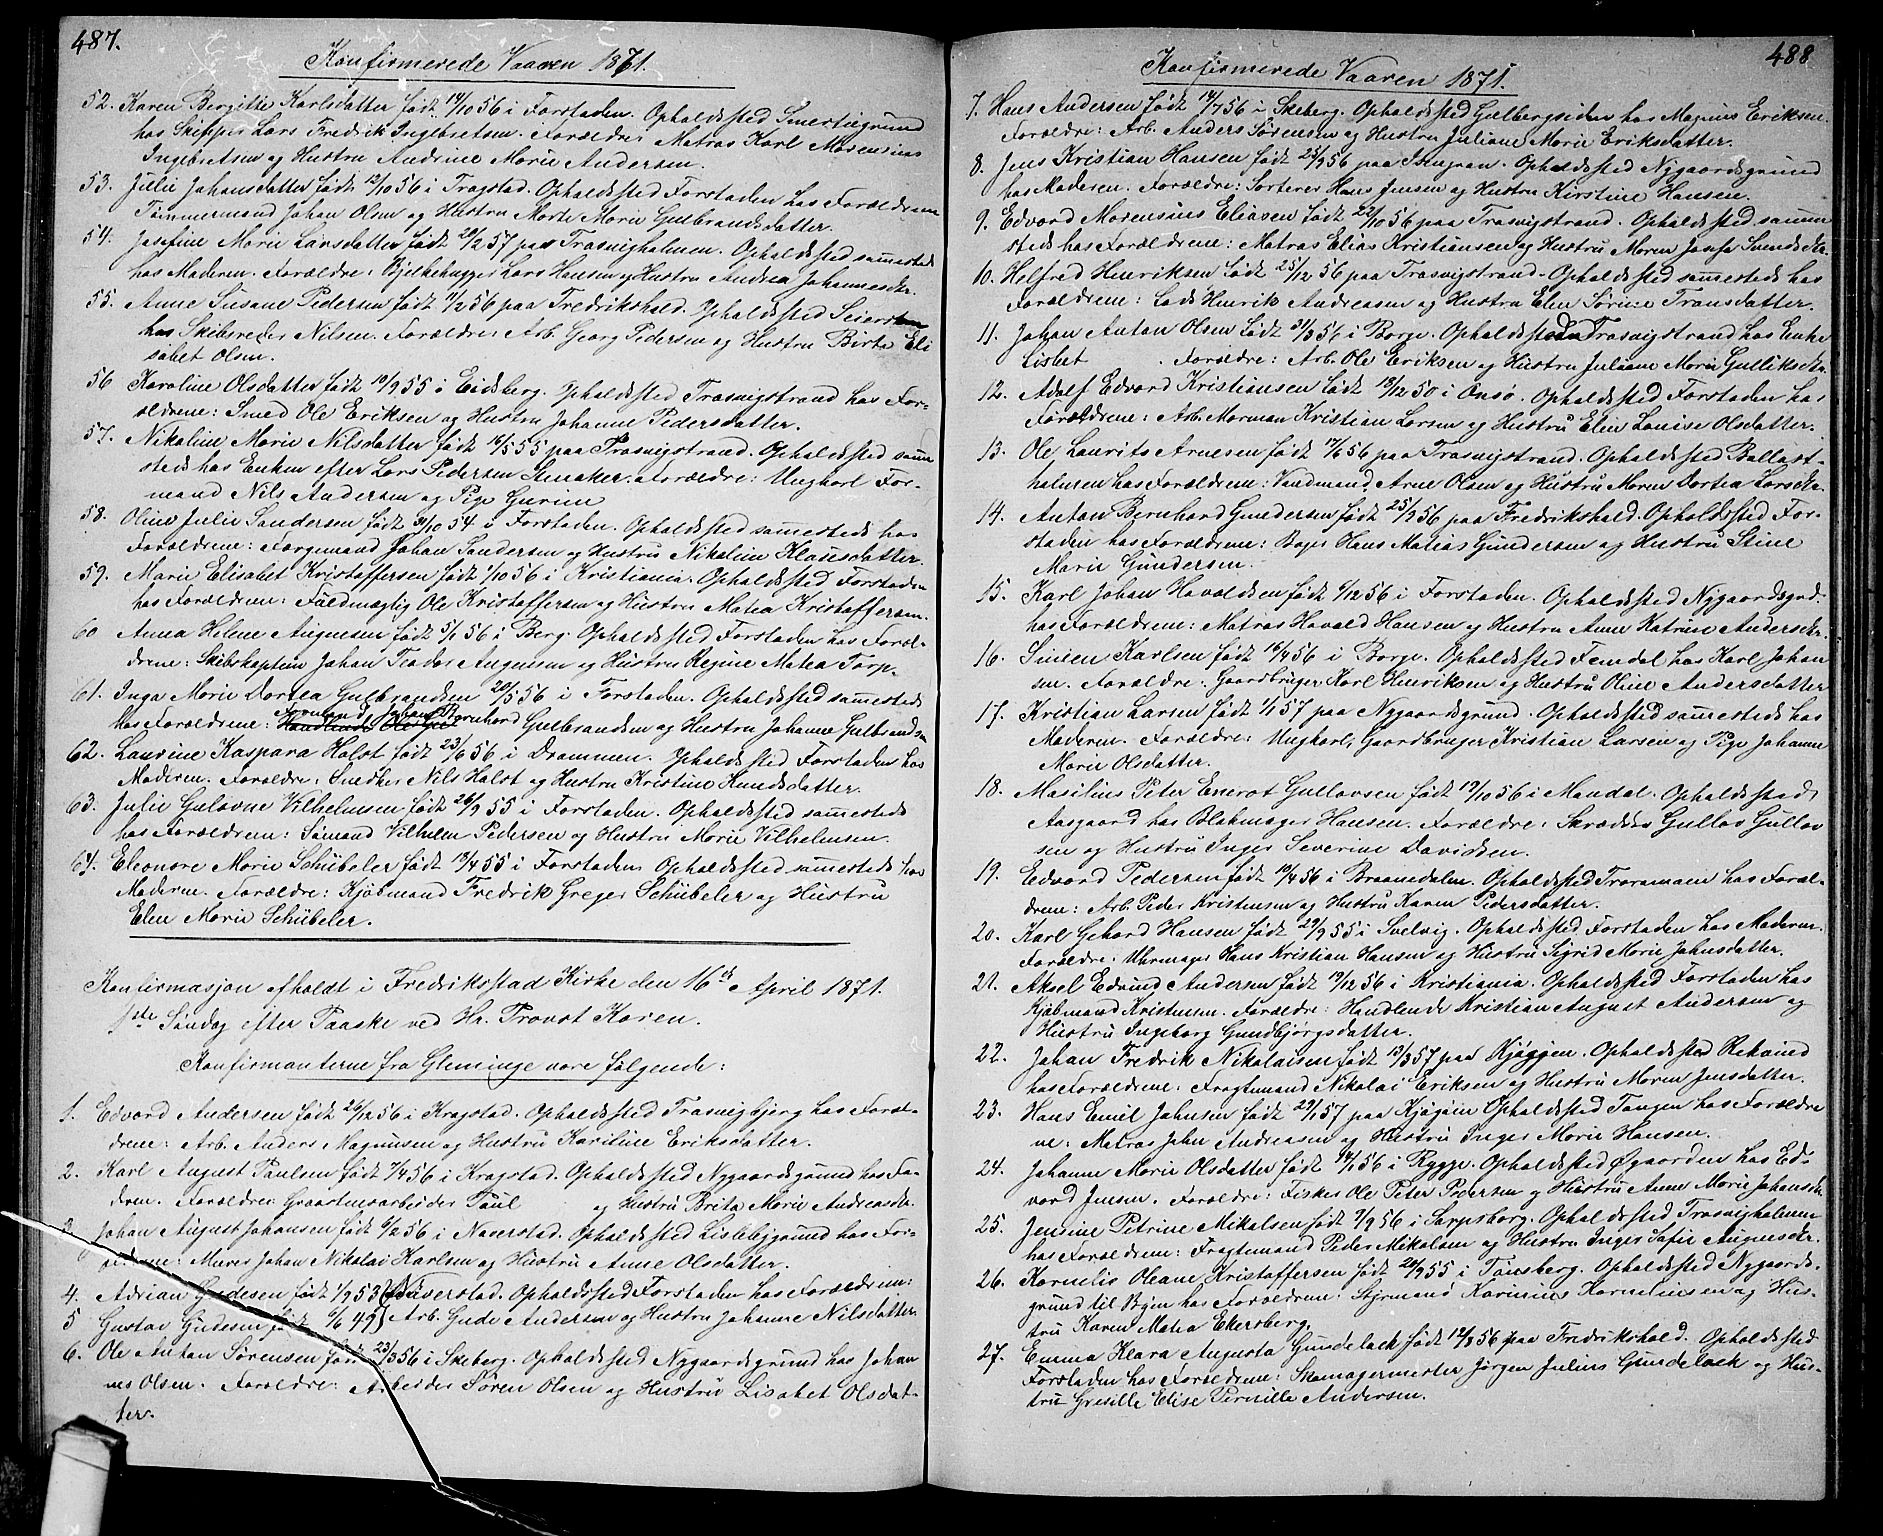 487.
Konfirmerede Vaaren 1871.
52. Karen Bergitte Karlsdatter født 14/10 56 i Forstaden. Opholdssted Smertugrund
hos Skipper Lars Fredrik Ingebretsen. Forældre: Matros Karl Morensius
Ingebretsen og Hustru Andrine Marie Andersen.
53. Julie Johansdatter født 12/10 56 i Trøgstad. Opholdssted Forstaden hos Forældrene
Tømmermand Johan Olsen og Hustru Marte Marie Gulbrandsdatter.
54. Josefine Marie Larsdatter født 20/2 57 paa Trosvigholmen. Opholdssted sammesteds
hos Moderen. Forældre: Bjelkehugger Lars Hansen og Hustru Andrea Johannesdtr.
55. Anne Susane Pedersen født 11/2 56 paa Fredrikshald. Opholdssted Seiersten
hos Skibsreder Nilsen. Forældre: Arb. Georg Pedersen og Hustru Birte Eli
sabet Olsen.
56 Karoline Olsdatter født 10/9 55 i Eidsberg. Opholdssted Trosvigstrand hos For-
ældrene: Smed Ole Eriksen og Hustru Johanne Pedersdatter.
57. Nikoline Marie Nilsdatter født 16/5 55 paa Trosvigstrand. Opholdssted samme
steds hos Enken efter Lars Pedersen Stenaker. Forældre: Ungkarl For-
mand Nils Andersen og Pige Gurine
58. Oline Julie Sandersen født 31/10 54 i Forstaden. Opholdssted sammesteds hos
Forældrene: Færgemand Johan Sandersen og Hustru Nikoline Klausdatter.
59. Marie Elisabet Kristoffersen født 1/10 56 i Kristiania. Opholdssted Forstaden
hos Forældrene: Fuldmægtig Ole Kristoffersen og Hustru Matea Kristoffersen.
60 Anna Helene Augensen født 5/1 56 i Berg. Opholdssted Forstaden hos Foræl-
drene: Skibskaptein Johan Teodor Augensen og Hustru Regine Matea Torp.
61. Inga Marie Dortea Gulbrandsen 20/5 56 i Forstaden. Opholdssted sammesteds
hos Forældrene: Bernhard Gulbrandsen og Hustru Johanne Gulbrandsen
62. Laurine Kaspara Holst født 23/6 56 i Drammen. Opholdssted Forstaden hos
Moderen. Forældre: Snedker Nils Holst og Hustru Kristine Knudsdatter.
63. Julie Gulovne Vilhelmsen født 26/9 55 i Forstaden. Opholdssted sammesteds
hos Forældrene: Sømand Vilhelm Pedersen og Hustru Marie Vilhelmsen.
64. Eleonore Marie Schübeler født 13/4 55 i Forstaden Opholdssted sammesteds hos
Moderen. Forældre: Kjøbmand Fredrik Greger Schübeler og Hustru
Elen Marie Schübeler.
Konfirmasjon afholdt i Fredriksstad Kirke den 16de April 1871.
1ste Søndag efter Paaske ved Hr. Provst Koren.
Konfirmanterne fra Glemminge vare følgende:
1. Edvard Andersen født 26/12 56 i Kragstad. Opholdssted Trosvigbjerg hos Foræl-
drene: Arb. Anders Magnusen og Hustru Karoline Eriksdatter.
2. Karl August Paulsen født 7/4 56 i Kragstad. Opholdssted Nygaardsgrund hos Fa-
deren. Forældre: Graastensarbeider Paul og Hustru Brita Marie Andreasdtr.
3. Johan August Johansen født 6/2 56 i Naverstad. Opholdssted Lislebygrund hos For-
ældrene: Murer Johan Nikolai Karlsen og Hustru Anne Olsdatter.
4. Adrian Gudesen født 1/9 53 i Naverstad. Opholdssted Forstaden hos Forældrene:
5 Gustav Gudesen født 6/6 49 Arb. Gude Andersen og Hustru Johanne Nilsdatter
6. Ole Anton Sørensen født 23/3 56 i Skeberg. Opholdssted Nygaardsgrund hos Johan
nes Olsen. Forældre: Arbeider Søren Olsen og Hustru Lisabet Olsdat-
ter.
488
Konfirmerede Vaaren 1871.
7. Hans Andersen født 14/7 56 i Skeberg. Opholdssted Gulbergsiden hos Magnus Eriksen.
Forældre: Arb. Anders Sørensen og Hustru Juliane Marie Eriksdatter.
8. Jens Kristian Hansen født 25/9 56 paa Isegran. Opholdssted Nygaardsgrund
hos Moderen. Forældre: Sorterer Hans Jensen og Hustru Kirstine Hansen.
9. Edvard Morensius Eliasen født 22/10 56 paa Trosvigstrand. Opholdssted samme
steds hos Forældrene: Matros Elias Kristiansen og Hustru Maren Josefa Svendsdtr.
10. Helfred Henriksen født 25/12 56 paa Trosvigstrand. Opholdssted sammesteds hos
Forældrene: Lods Henrik Andreasen og Hustru Elen Sørine Fransdatter.
11. Johan Anton Olsen født 31/3 56 i Borge. Opholdssted Trosvigstrand hos Enke
Lisbet . Forældre: Arb. Ole Eriksen og Hustru Juliane Marie Gulliksdtr.
12. Adolf Edvard Kristiansen født 13/12 50 i Onsø. Opholdssted Forstaden hos
Forældrene: Arb. Morman Kristian Larsen og Hustru Elen Louise Olsdatter.
13. Ole Laurits Arnesen født 17/6 56 paa Trosvigstrand. Opholdssted Ballast-
holmen hos Forældrene: Vandmand Arne Olsen og Hustru Maren Dortea Larsdtr.
14. Anton Bernhard Gundersen født 25/9 56 paa Fredrikshald. Opholdssted For-
staden hos Forældrene: Bager Hans Matias Gundersen og Hustru Stine
Marie Gundersen.
15. Karl Johan Havaldsen født 6/12 56 i Forstaden. Opholdssted Nygaardsgrd.
hos Forældrene: Matros Havald Hansen og Hustru Anne Katrine Andersdtr.
16. Simen Karlsen født 16/4 56 i Borge. Opholdssted Femdal hos Karl Johan
sen. Forældre. Gaardbruger Karl Henriksen og Hustru Oline Andersdatter
17. Kristian Larsen født 1/1 57 paa Nygaardsgrund. Opholdssted sammesteds hos
Moderen. Forældre: Ungkarl, Gaardbruger Kristian Larsen og Pige Johanne
Marie Olsdatter.
18. Masilius Peter Enerot Gullovsen født 19/10 56 i Mandal. Opholdssted
Aasgaard hos Blokmager Hansen. Forældre: Skrædder Gullov Gullov
sen og Hustru Inger Severine Davidsen.
19. Edvard Pedersen født 10/4 56 i Braanedalen. Opholdssted Traramoen hos Foræl-
drene: Arb. Peder Kristensen og Hustru Karen Pedersdatter.
20. Karl Gehard Hansen født 29/9 55 i Svelvig. Opholdssted Forstaden hos Moderen.
Forældre: Uhrmager Hans Kristian Hansen og Hustru Sigrid Marie Johnsdatter.
21. Aksel Edvind Andersen født 19/12 56 i Kristiania. Opholdssted Forstaden hos
Kjøbmand Kristensen. Forældre: Handlende Kristian August Andersen og
Hustru Ingeborg Gundbjørgsdatter.
22. Johan Fredrik Nikolaisen født 13/3 57 paa Kjøgøen. Opholdssted Rekvind
hos Forældrene: Fragtemand Nikolai Eriksen og Hustru Maren Jensdatter.
23. Hans Emil Johnsen født 29/1 57 paa Kjøgøen Opholdssted Tangen hos Forældre
ne: Matros John Andreasen og Hustru Inger Marie Hansen.
24. Johanne Marie Olsdatter født 14/1 56 i Rygge. Opholdssted Øgaarden hos Ed-
vard Jensen. Forældre: Fisker Ole Peter Pedersen og Hustru Anne Marie Johansdtr
25. Jensine Petrine Mikalsen født 7/9 56 i Sarpsborg. Opholdssted Trosvigholmen
hos Forældrene: Fragtemand Peder Mikalsen og Hustru Inger Sofie Augensdtr.
26. Kornelie Oleane Kristoffersen født 20/9 55 i Tønsberg. Opholdssted Nygaards-
grund til Byen hos Forældrene: Styrmand Karinius Korneliussen og Hus-
tru Karen Matea Ekersberg.
27. Emma Klara Augusta Gundelack født 12/8 56 paa Fredrikshald. Opholdssted
Forstaden hos Forældrene: Skomagermester Jørgen Julius Gundelack og Hus-
tru Gresille Elise Pernille Andersen.